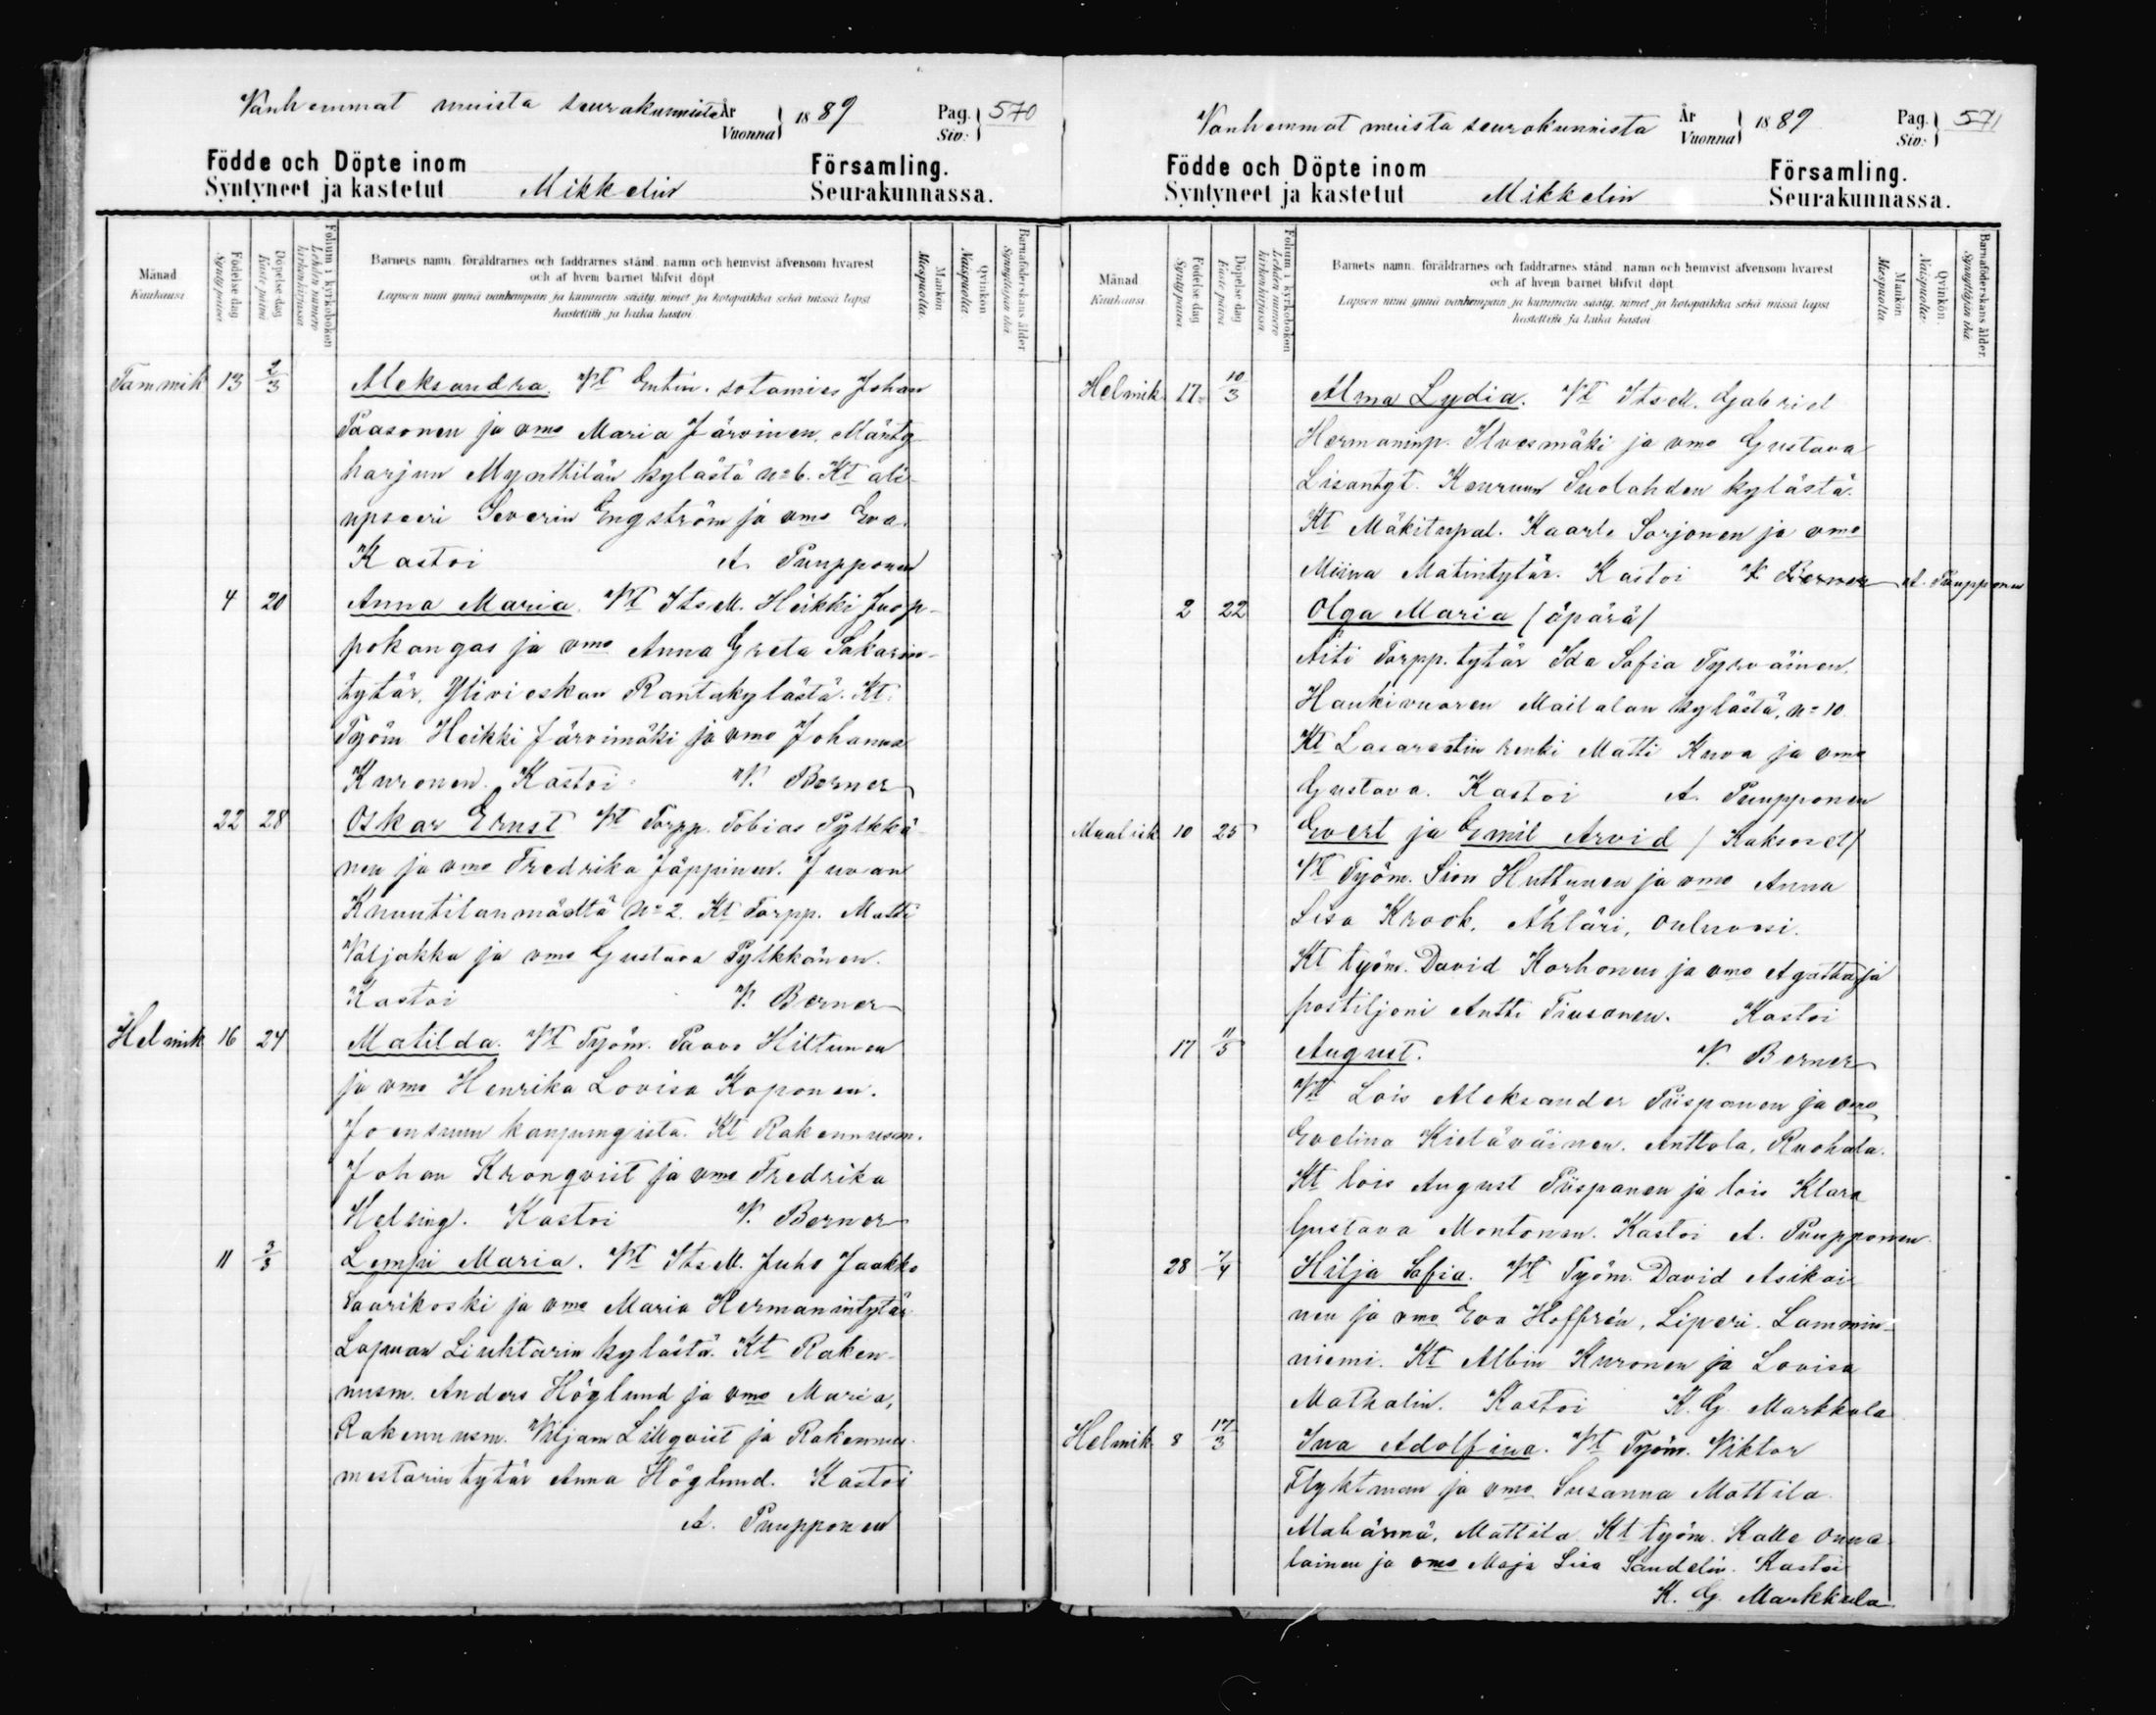 Vanhemmat muista seurakunnista År Vuonna 1889 Pag. Siv: 570
Födde och Döpte inom Församling.
Syntyneet ja kastetut Mikkelin Seurakunnassa.
Månad Kuukausi
Födelse dag Synty päivä
Döpelse dag Kaste päivä
Folium i kyrkoboken Lehden numero kirkonkirjassa
Barnets namn, föräldrarnes och faddrarnes stånd, namn och hemvist äfvensom hvarest
och af hvem barnet blifvit döpt
Lapsen nimi ynnä vanhempain ja kummein sääty, nimet ja kotopaikka sekä missä lapsi
kastettiin ja kuka kastoi
Mankön Miespuolta.
Qvinkön Naispuolta
Barnaföderskans ålder Synnyttäjän ikä
Tammik 13 2/3 Aleksandra. Vt Entin. sotamies Johan
Paasonen ja vmo Maria Järvinen, Mänty-
harjun Mynttilän kylästä No 6. Kt ali-
upseeri Severin Engström ja vmo Eva.
Kastoi A. Puupponen
4 20 Anna Maria. Vt Its M. Heikki Juop-
pokangas ja vmo Anna Greta Sakarin-
tytär, Ylivieskan Rantakylästä. Kt.
Työm Heikki Järvimäki ja vmo Johanna
Kuronen. Kastoi V. Berner
22 28 Oskar Ernst Vt Torpp. Tobias Pylkkä-
nen ja vmo Fredrika Jäppinen. Juvan
Knuutilanmäeltä No 2. Kt Torpp. Matti
Valjakka ja vmo Gustava Pylkkänen.
Kastoi V. Berner
Helmik 16 24 Matilda. Vt Työm. Paavo Hiltunen
ja vmo Henrika Lovisa Koponen.
Joensuun kaupungista. Kt Rakennusm.
Johan Kronqvist ja vmo Fredrika
Helsing. Kastoi V. Berner
11 3/3 Lempi Maria. Vt Its M. Juho Jaakko
Saarikoski ja vmo Maria Hermanintytär
Lapuan Liuhtarin kylästä. Kt Raken-
nusm. Anders Höglund ja vmo Maria,
Rakennusm. Viljam Lillqvist ja Rakennus-
mestarin tytär Anna Höglund. Kastoi
A. Puupponen
Vanhemmat muista seurakunnista År Vuonna 1889 Pag. Siv: 571
Födde och Döpte inom Församling.
Syntyneet ja kastetut Mikkelin Seurakunnassa.
Månad Kuukausi
Födelse dag Synty päivä
Döpelse dag Kaste päivä
Folium i kyrkoboken Lehden numero kirkonkirjassa
Barnets namn, föräldrarnes och faddrarnes stånd, namn och hemvist äfvensom hvarest
och af hvem barnet blifvit döpt
Lapsen nimi ynnä vanhempain ja kummein sääty, nimet ja kotopaikka sekä missä lapsi
kastettiin ja kuka kastoi
Mankön Miespuolta
Qvinkön. Naispuolta.
Barnaföderskans ålder. Synnyttäjän ikä
Helmik 17 10/3 Alma Lydia. Vt Its M. Gabriel
Hermaninp. Ilvesmäki ja vmo Gustava
Lisantyt. Keuruun Suolahden kylästä.
Kt Mäkitupal. Kaarle Sorjonen ja vmo
Miina Matintytär. Kastoi V. Berner A. Puupponen
2 22 Olga Maria (äpärä)
Äiti Torpp. tytär Ida Sofia Tyrväinen,
Haukivuoren Mailalan kylästä, No 10.
Kt Lasarestin renki Matti Kuva ja vmo
Gustava. Kastoi A. Puupponen
Maalisk 10 25 Evert ja Emil Arvid (Kaksoset)
Vt Työm. Sion Huttunen ja vmo Anna
Lisa Krook, Ähläri,
Kt työm. David Korhonen ja vmo Agatha ja
postiljoni Antti Tiusanen. Kastoi
17 11/5 August. V. Berner
Vt Lois Aleksander Piispanen ja vmo
Evelina Kietäväinen. Anttola, Ruohola.
Kt lois August Piispanen ja lois Klara
Gustava Montonen. Kastoi A. Puupponen.
28 7/4 Hilja Sofia. Vt Työm. David Asikai-
nen ja vmo Eva Hoffrén, Liperi. Lammin-
niemi. Kt Albin Kuronen ja Lovisa
Mathalin. Kastoi K. G. Markkula
Helmik 8 17/3 Ina Adolfina. Vt Työm. Viktor
Flyktman ja vmo Susanna Mattila.
Alahärmä, Mattila. Kt työm. Kalle Onna-
lainen ja vmo Maja Lisa Sandelin. Kastoi
K. G. Markkula